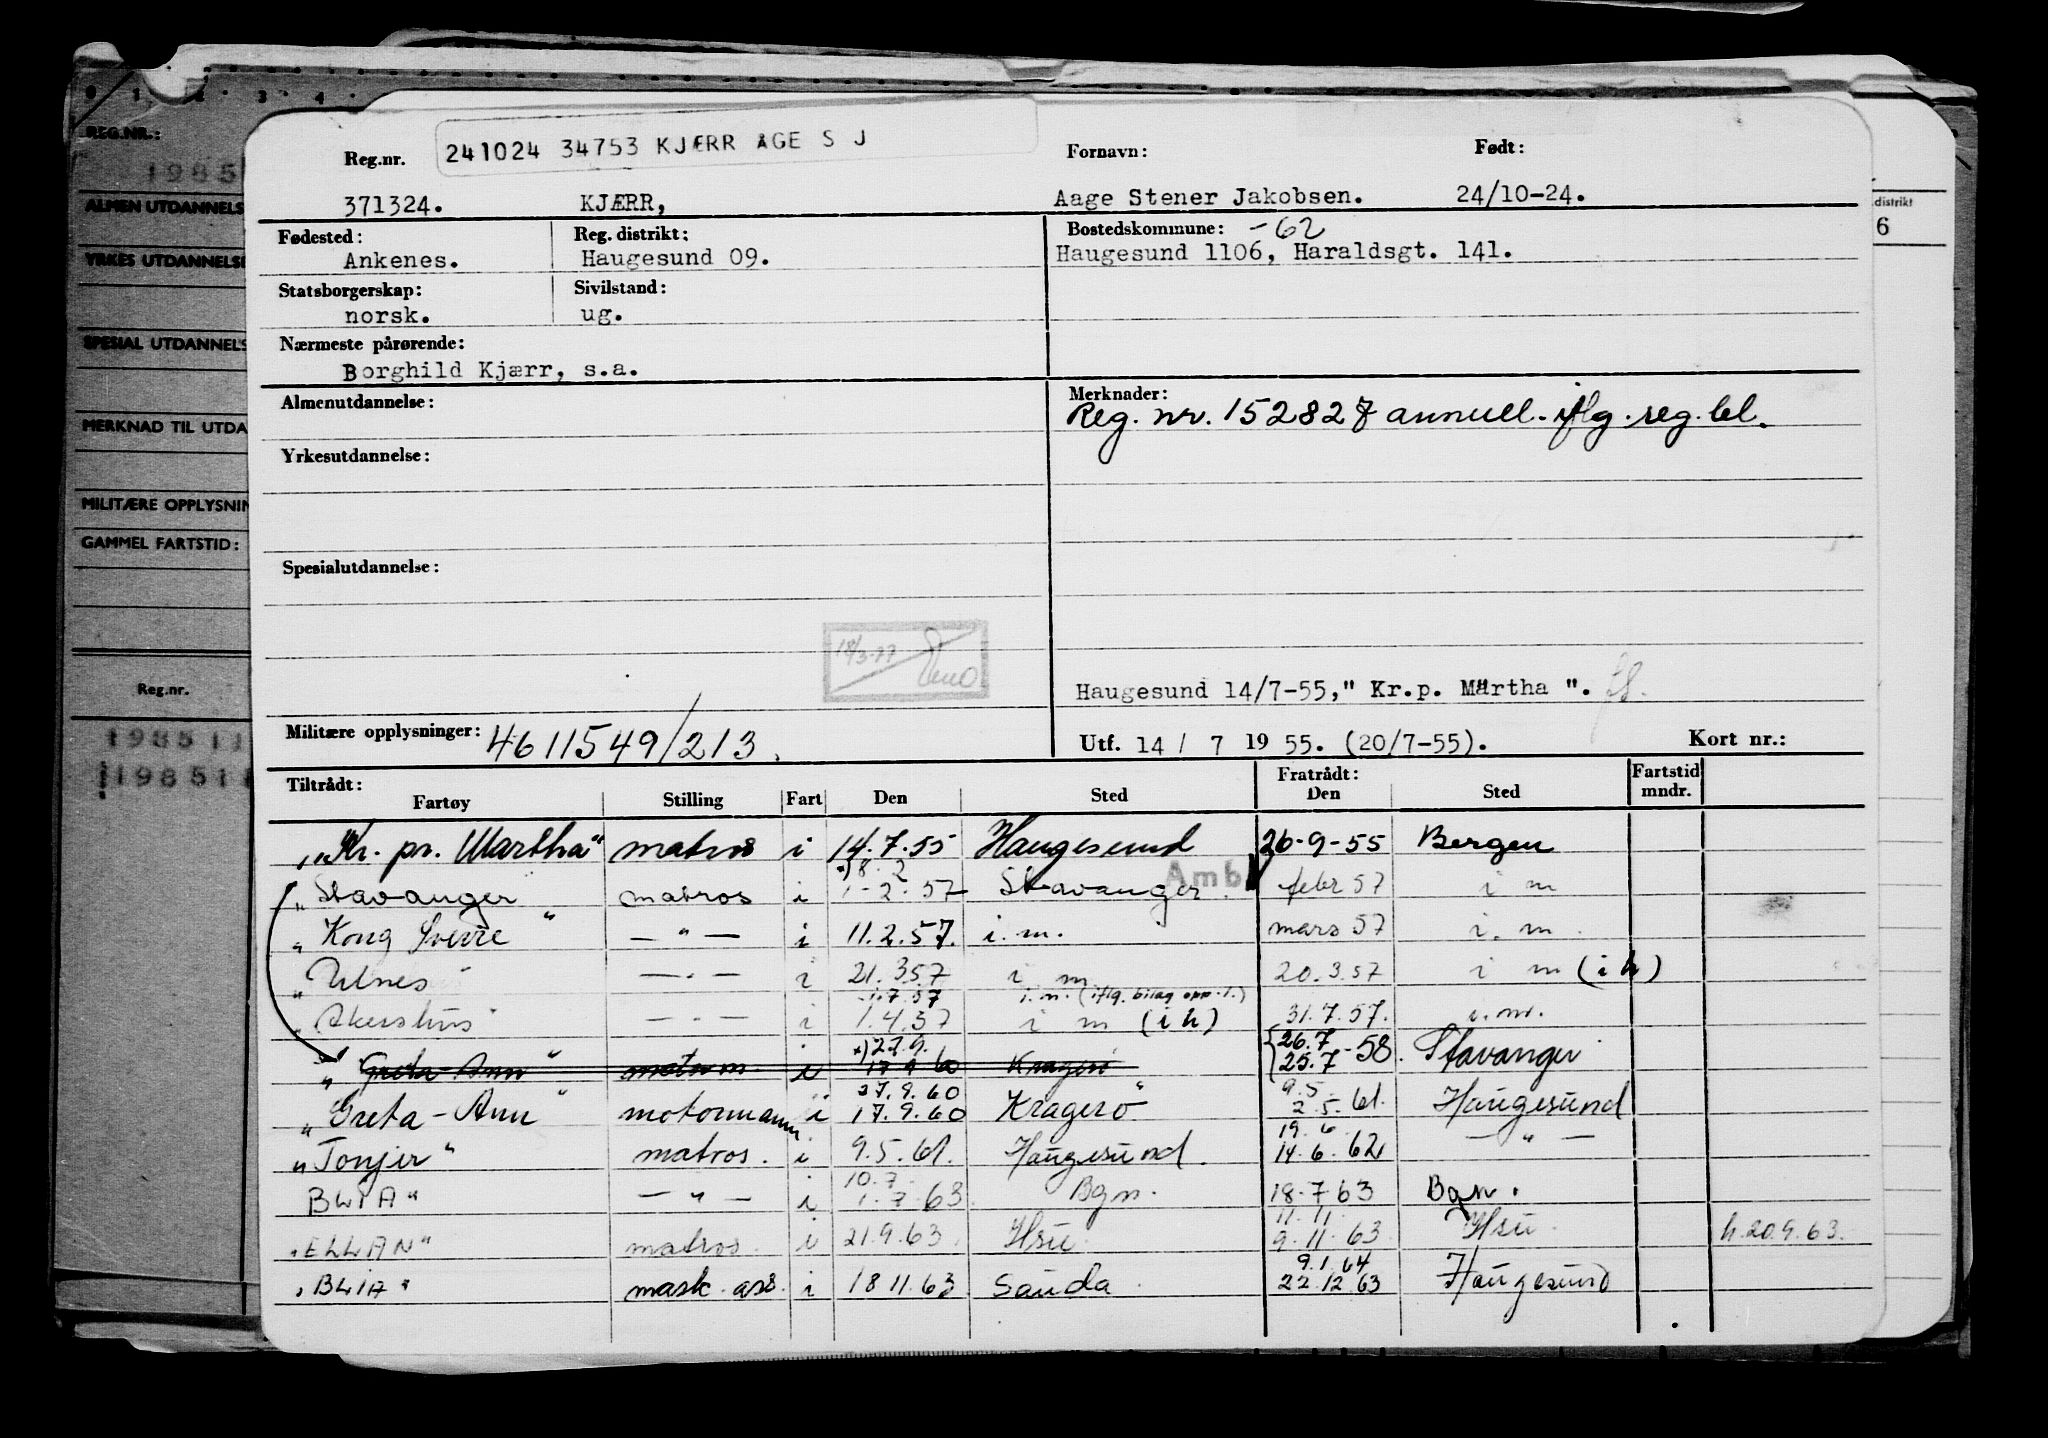 0 1 2 3 4
REG.NR.:
1985
ALMEN UTDANNELS
YRKES UTDANNELSE
SPESIAL UTDANNELS
MERKNAD TIL UTDA
MILITÆRE OPPLYSNIN
GAMMEL FARTSTID:
Reg.nr.
198511
198511
distrikt
6
241024 34753 KJÆRR AGE S J
Reg.nr. Fornavn: Født:
371324. KJÆRR, Aage Stener Jakobsen. 24/10-24.
Fødested: Reg. distrikt: Bostedskommune: -62
Ankenes. Haugesund 09. Haugesund 1106, Haraldsgt. 141.
Statsborgerskap: Sivilstand:
norsk. ug.
Nærmeste pårørende:
Borghild Kjærr, s.a.
Almenutdannelse: Merknader:
Reg. nr. 152827 annull. iflg. reg. bl.
Yrkesutdannelse:
Spesialutdannelse:
18/3-77
Haugesund 14/7-55," Kr.p. Märtha ".
Militære opplysninger: 4611549/213. Utf. 14 / 7 19 55. (20/7-55). Kort nr.:
Tiltrådt: Fratrådt: Fartstid
Fartøy Stilling Fart Den Sted Den Sted mndr.
"Kr. pr. Märtha" matros i 14.7.55 Haugesund 26-9-55 Bergen
x) 8.2 Amb
"Stavanger matros i 1-2.57 Stavanger. febr 57 i m
"Kong Sverre" — " — i 11.2.57. i.m. mars 57 i. m.
"Utnes" — " — i 21.3.57 i m 20.3.57 i m (i h)
1.7.57 i.m. (iflg. bilag opp.l.)
"Akershus" — " — i 1.4.57 i m (i h) 31.7.57. i.m.
x) 27.9. 26.7
"Greta-Ann" i 17.9.60 Kragerö 25.7-58. Stavanger
27.9.60 9.5.
"Greta-Ann" motormann i 17.9.60 Kragerö 2.5.61. Haugesund
19.6
"Tonjer" matros. i 9.5.61. Haugesund. 14.6.62 — " —
10.7
BLIA" — " — i 1.7.63 Bgn. 18.7 63 Bgn.
11.11
"ELLAN" matros. i 21.9.63. Hsu. 9.11.63. Hsu. h. 20.9.63.
9.1.64
"BLIA" mask. ass. i 18 11.63 Sauda 22.12 63 Haugesund